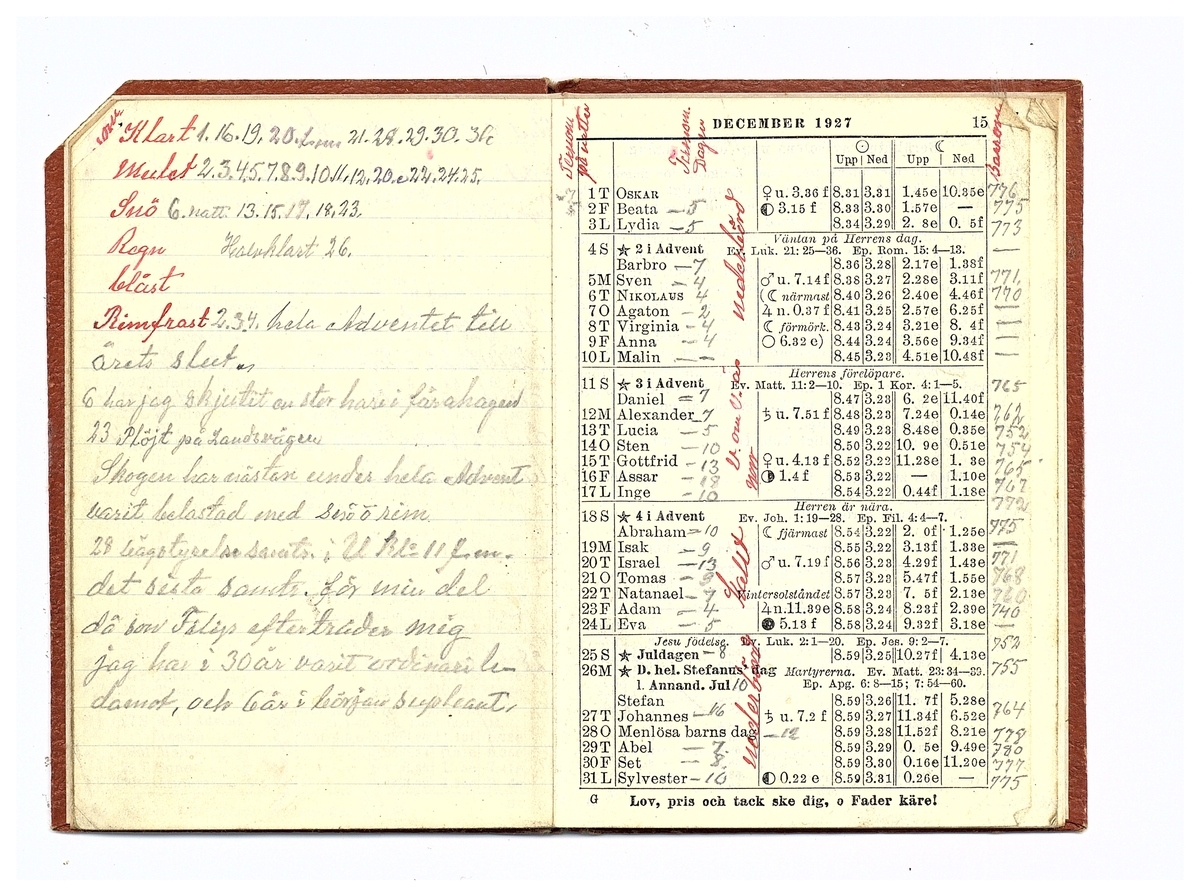 Klart 1.16.19. 20. 21.28.29.30.
Mulet 2.3.4.5.7.8.9.10.11.12.20.e22.24.25.
Snö 6. natt. 13.15.17.18.23.
Regn Halvklart 26.
blåst
Rimfrost 2.3.4. hela Adventet till
årets slut.
6 har jag skjutit en stor hare i fårahagen
23 Plöjt på Landsvägen
Skogen har nästan under hela Advent
varit belastad med snö ö rim.
28 samtr. Kl 11 f.m.
det sista samtr. för min del
då son Filip efterträder mig
jag har i 30 år varit ordinarie le-
damot, och 6 år i början supleant.
DECEMBER 1927 15
Termom. på natten
Termom. Dagen
Barrom
Upp Ned Upp Ned
1 T OSKAR ♀ u. 3.36 f 8.31 3.31 1.45e 10.35e 776
2 F Beata — 5 3.15 f 8.33 3.30 1.57e — 775
3 L Lydia — 5 8.34 3.29 2. 8e 0. 5f 773
Väntan på Herrens dag.
4 S ★ 2 i Advent Ev. Luk. 21: 25—36. Ep. Rom. 15: 4—13. —
Barbro — 7 8.36 3.28 2.17e 1.38f
5 M Sven — 4 ♂ u. 7.14f 8.38 3.27 2.28e 3.11f 771
6 T NIKOLAUS 4 (☾ närmast 8.40 3.26 2.40e 4.46f 770
7 O Agaton — 2 ♃ n. 0.37 f 8.41 3.25 2.57e 6.25f —
8 T Virginia — 4 ☾ förmörk. 8.43 3.24 3.21e 8. 4f —
9 F Anna — 4 ○ 6.32 e) 8.44 3.24 3.56e 9.34f —
10 L Malin — — 8.45 3.23 4.51e 10.48f —
Herrens förelöpare.
11 S ★ 3 i Advent Ev. Matt. 11: 2—10. Ep. 1 Kor. 4: 1—5. 765
Daniel — 7 8.47 3.23 6. 2e 11.40f
12 M Alexander 7 ♄ u. 7.51 f 8.48 3.23 7.24e 0.14e 762
13 T Lucia — 5 8.49 3.23 8.48e 0.35e 752
14 O Sten — 10 8.50 3.22 10. 9e 0.51e 754
15 T Gottfrid — 13 ♀ u. 4.13 f 8.52 3.22 11.28e 1. 3e 765
16 F Assar — 18 1.4 f 8.53 3.22 — 1.10e 767
17 L Inge — 10 8.54 3.22 0.44f 1.18e 772
Herren är nära.
18 S ★ 4 i Advent Ev. Joh. 1: 19—28. Ep. Fil. 4: 4—7. 775
Abraham — 10 ☾ fjärmast 8.54 3.22 2. 0f 1.25e
19 M Isak — 9 8.55 3.22 3.13f 1.33e —
20 T Israel — 13 ♂ u. 7.19 f 8.56 3.23 4.29f 1.43e 771
21 O Tomas — 8 8.57 3.23 5.47f 1.55e 768
22 T Natanael — 7 Vintersolståndet 8.57 3.23 7. 5f 2.13e 760
23 F Adam — 4 ♃ n. 11.39e 8.58 3.24 8.23f 2.39e 740
24 L Eva — 5 5.13 f 8.58 3.24 9.32f 3.18e —
Jesu födelse. Ev. Luk. 2: 1—20. Ep. Jes. 9: 2—7.
25 S ★ Juldagen — 8 8.59 3.25 10.27f 4.13e 752
26 M ★ D. hel. Stefanus' dag Martyrerna. Ev. Matt. 23: 34—39. 755
l. Annand. Jul 10 Ep. Apg. 6: 8—15; 7: 54—60.
Stefan 8.59 3.26 11. 7f 5.28e
27 T Johannes — 16 ♄ u. 7.2 f 8.59 3.27 11.34f 6.52e 764
28 O Menlösa barns dag — 12 8.59 3.28 11.52f 8.21e 778
29 T Abel — 7. 8.59 3.29 0. 5e 9.49e 780
30 F Set — 8. 8.59 3.30 0.16e 11.20e 777
31 L Sylvester — 10 0.22 e 8.59 3.31 0.26e — 775
nederbörd
Kallt
nederbörd
G Lov, pris och tack ske dig, o Fader käre!